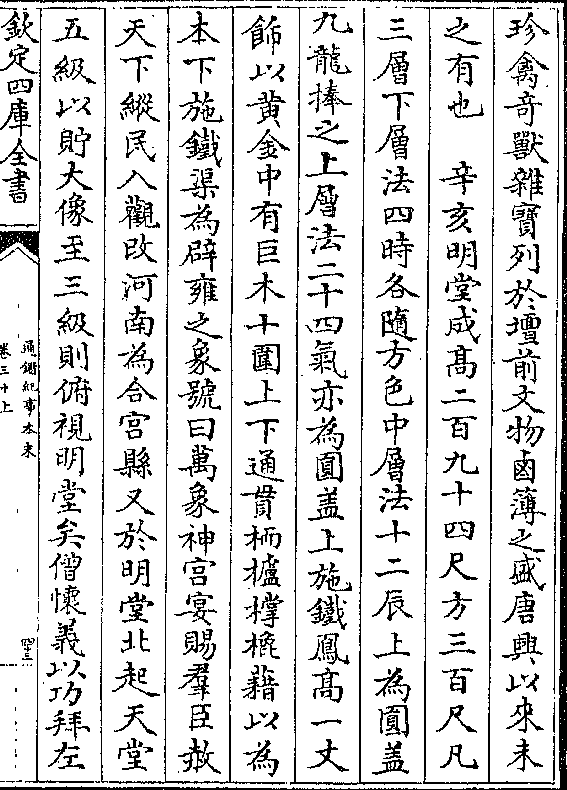 珍禽奇獸雜寶列於壇前文物鹵簿之盛唐興以來未
之有也　辛亥明堂成髙二百九十四尺方三百尺凡
三層下層法四時各隨方色中層法十二辰上為圓盖
九龍捧之上層法二十四氣亦為圓盖上施鐵鳳髙一丈
飾以黄金中有巨木十圍上下通貫栭櫨撑㮰藉以為
本下施鐵渠為辟雍之象號曰萬象神宫宴賜羣臣赦
天下縱民入觀改河南為合宫縣又於明堂北起天堂
五級以貯大像至三級則俯視明堂矣僧懷義以功拜左
欽定四庫全書
通鑑紀事本末
卷三十上
四十三